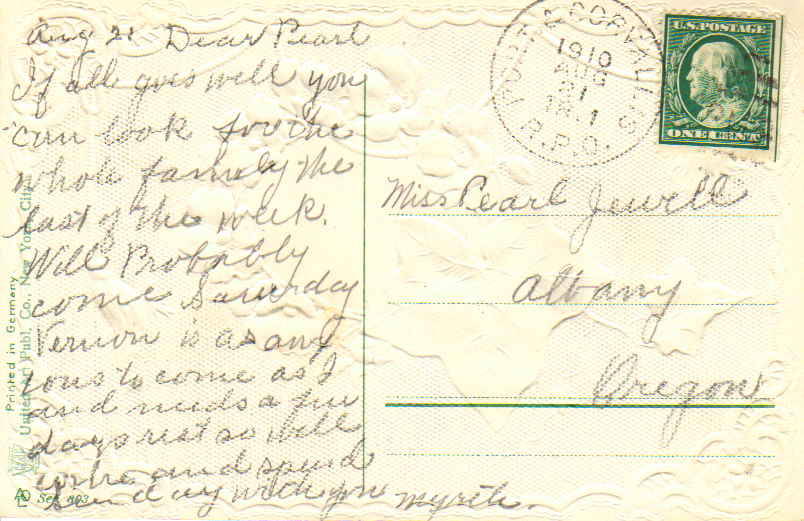 Aug 21 Dear Pearl
If all goes well you
can look for the
whole family the
last of the week.
Will Probably
come Saturday
Vernon is as anx
ious to come as I
and needs a few
days rest so will
come and spend
Sunday with you Myrtle.
Miss Pearl Jewell
Albany
Oregon
PORT & CORVALLIS
1910
AUG
21
TR 1
R.P.O.
U.S. POSTAGE
ONE CENT
Printed in Germany
United Art Publ. Co., New York City
Ser. 603